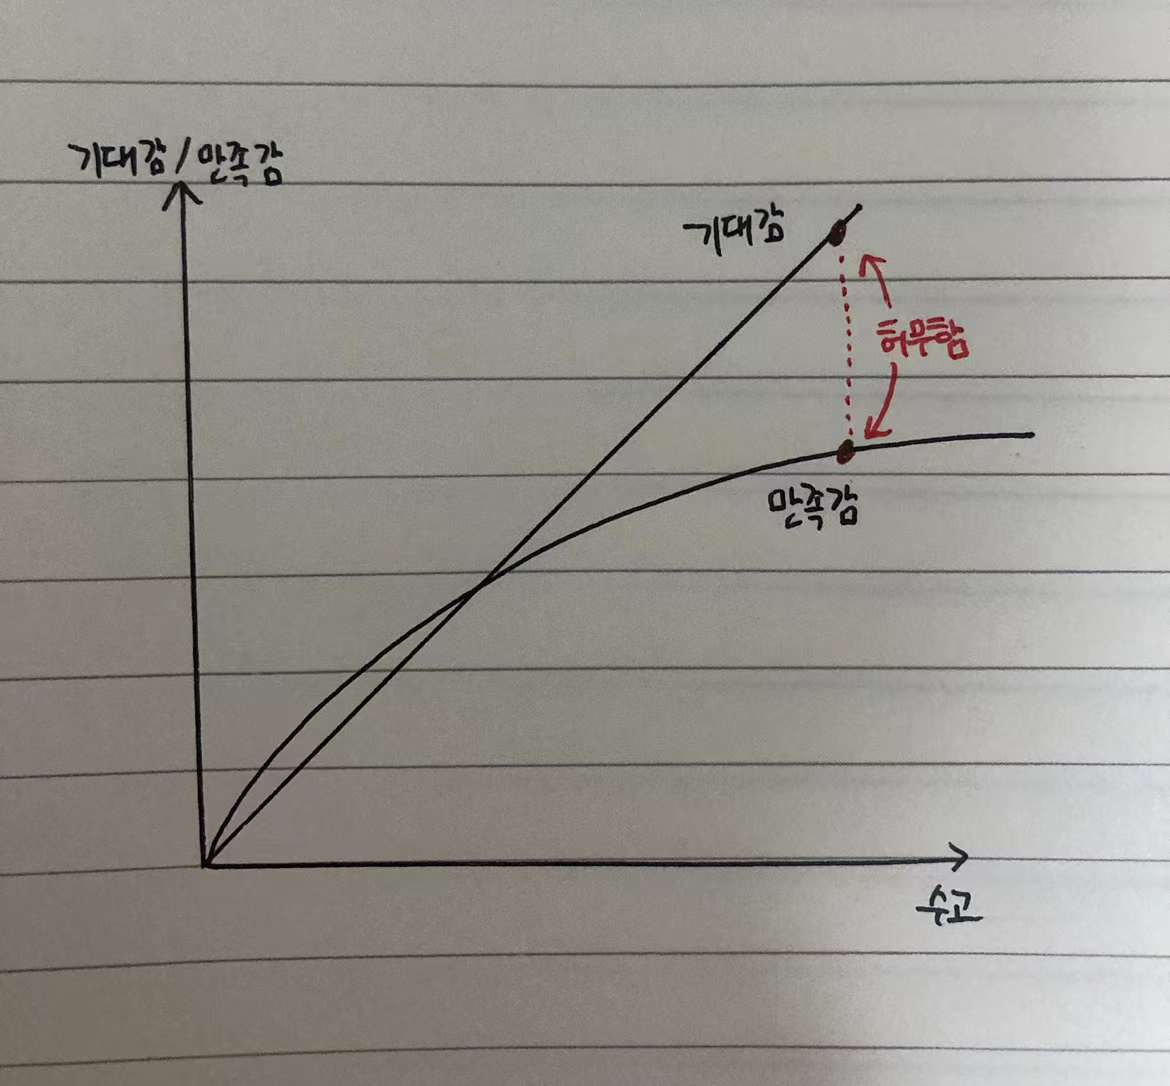 기대감/만족감
기대감
허무함
만족감
수고